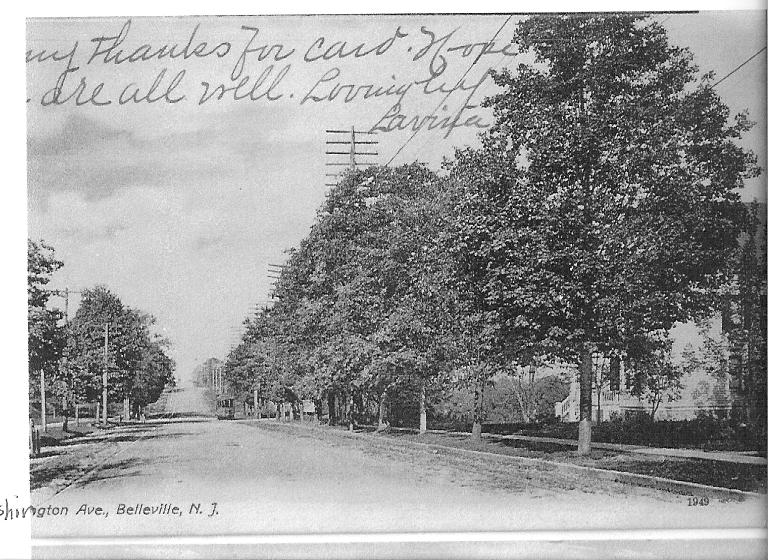 my thanks for card. Hope
are all well. Lovingly
Lavina
shington Ave., Belleville, N. J.
1949